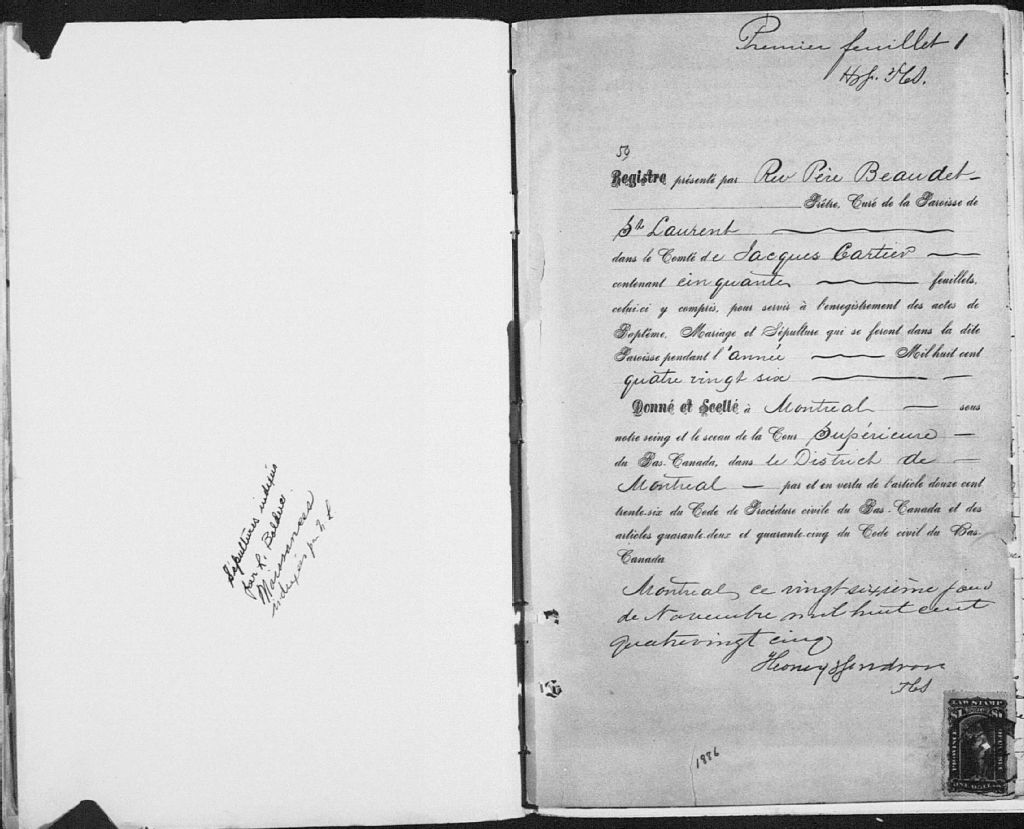 Sépultures indexées
par R. Bolduc
Naissances
indexées par
Premier feuillet 1
59
Registre présenté par Rev Père Beaudet
Prêtre, Curé de la Paroisse de
St Laurent
dans le Comté de Jacques Cartier
contenant cinquante feuillets,
celui-ci y compris, pour servir à l'enregistrement des actes de
Baptême, Mariage et Sépulture qui se feront dans la dite
Paroisse pendant l'année Mil huit cent
quatre vingt six
Donné et Scellé à Montreal sous
notre seing et le sceau de la Cour Supérieure
du Bas-Canada, dans le District de
Montreal par et en vertu de l'article douze cent
trente-six du Code de Procédure civile du Bas-Canada et des
articles quarante-deux et quarante-cinq du Code civil du Bas-
Canada
Montreal, ce vingt sixième jour
de Novembre mil huit cent
quatrevingt cinq
1886
LAW STAMP
$1 $1
PROVINCE
ONE DOLLAR